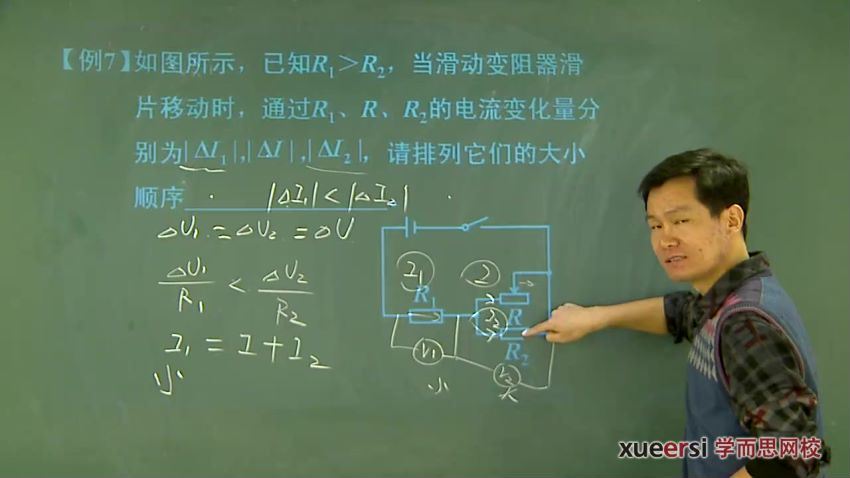 【例7】如图所示，已知R₁＞R₂，当滑动变阻器滑
片移动时，通过R₁、R、R₂的电流变化量分
别为|ΔI₁|,|ΔI|,|ΔI₂|，请排列它们的大小
顺序
|ΔI₁| < |ΔI₂|
ΔU₁ = ΔU₂ = ΔU
ΔU₁/R₁ < ΔU₂/R₂
I₁ = I + I₂
小
I₁
I
R₁
R
I₂
R₂
V₁
V₂
小
大
xueersi 学而思网校